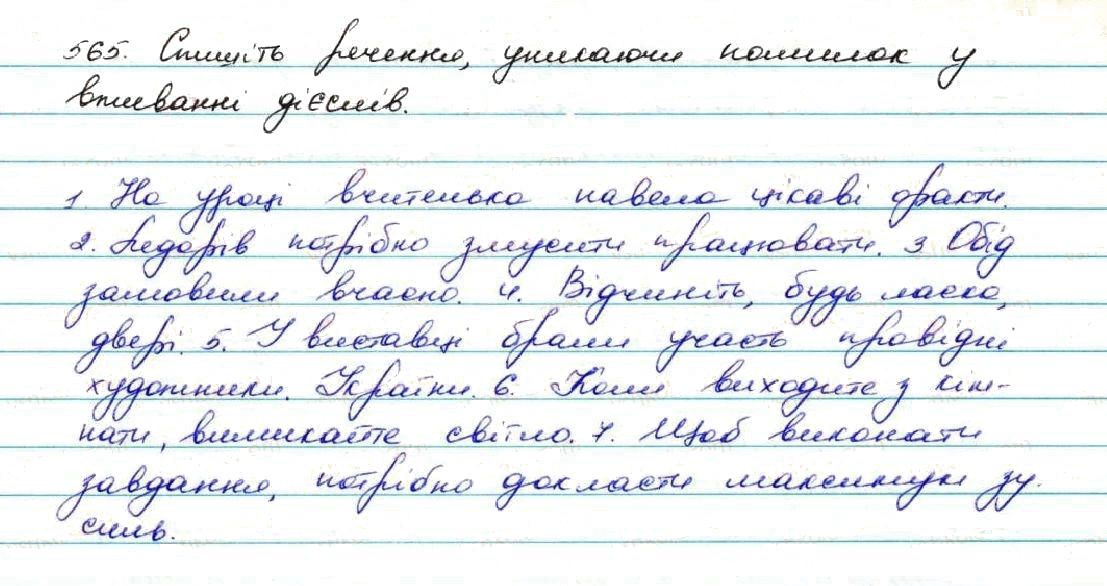 565. Спишіть речення, уникаючи помилок у
вживанні дієслів.
1. На уроці вчителька навела цікаві факти.
2. Ледарів потрібно змусити працювати. 3 Обід
замовили вчасно. 4. Відчиніть, будь ласка,
двері. 5. У виставці брали участь провідні
художники. України. 6. Коли виходите з кім-
нати, вимикайте світло. 7. Щоб виконати
завдання, потрібно докласти максимум зу-
силь.